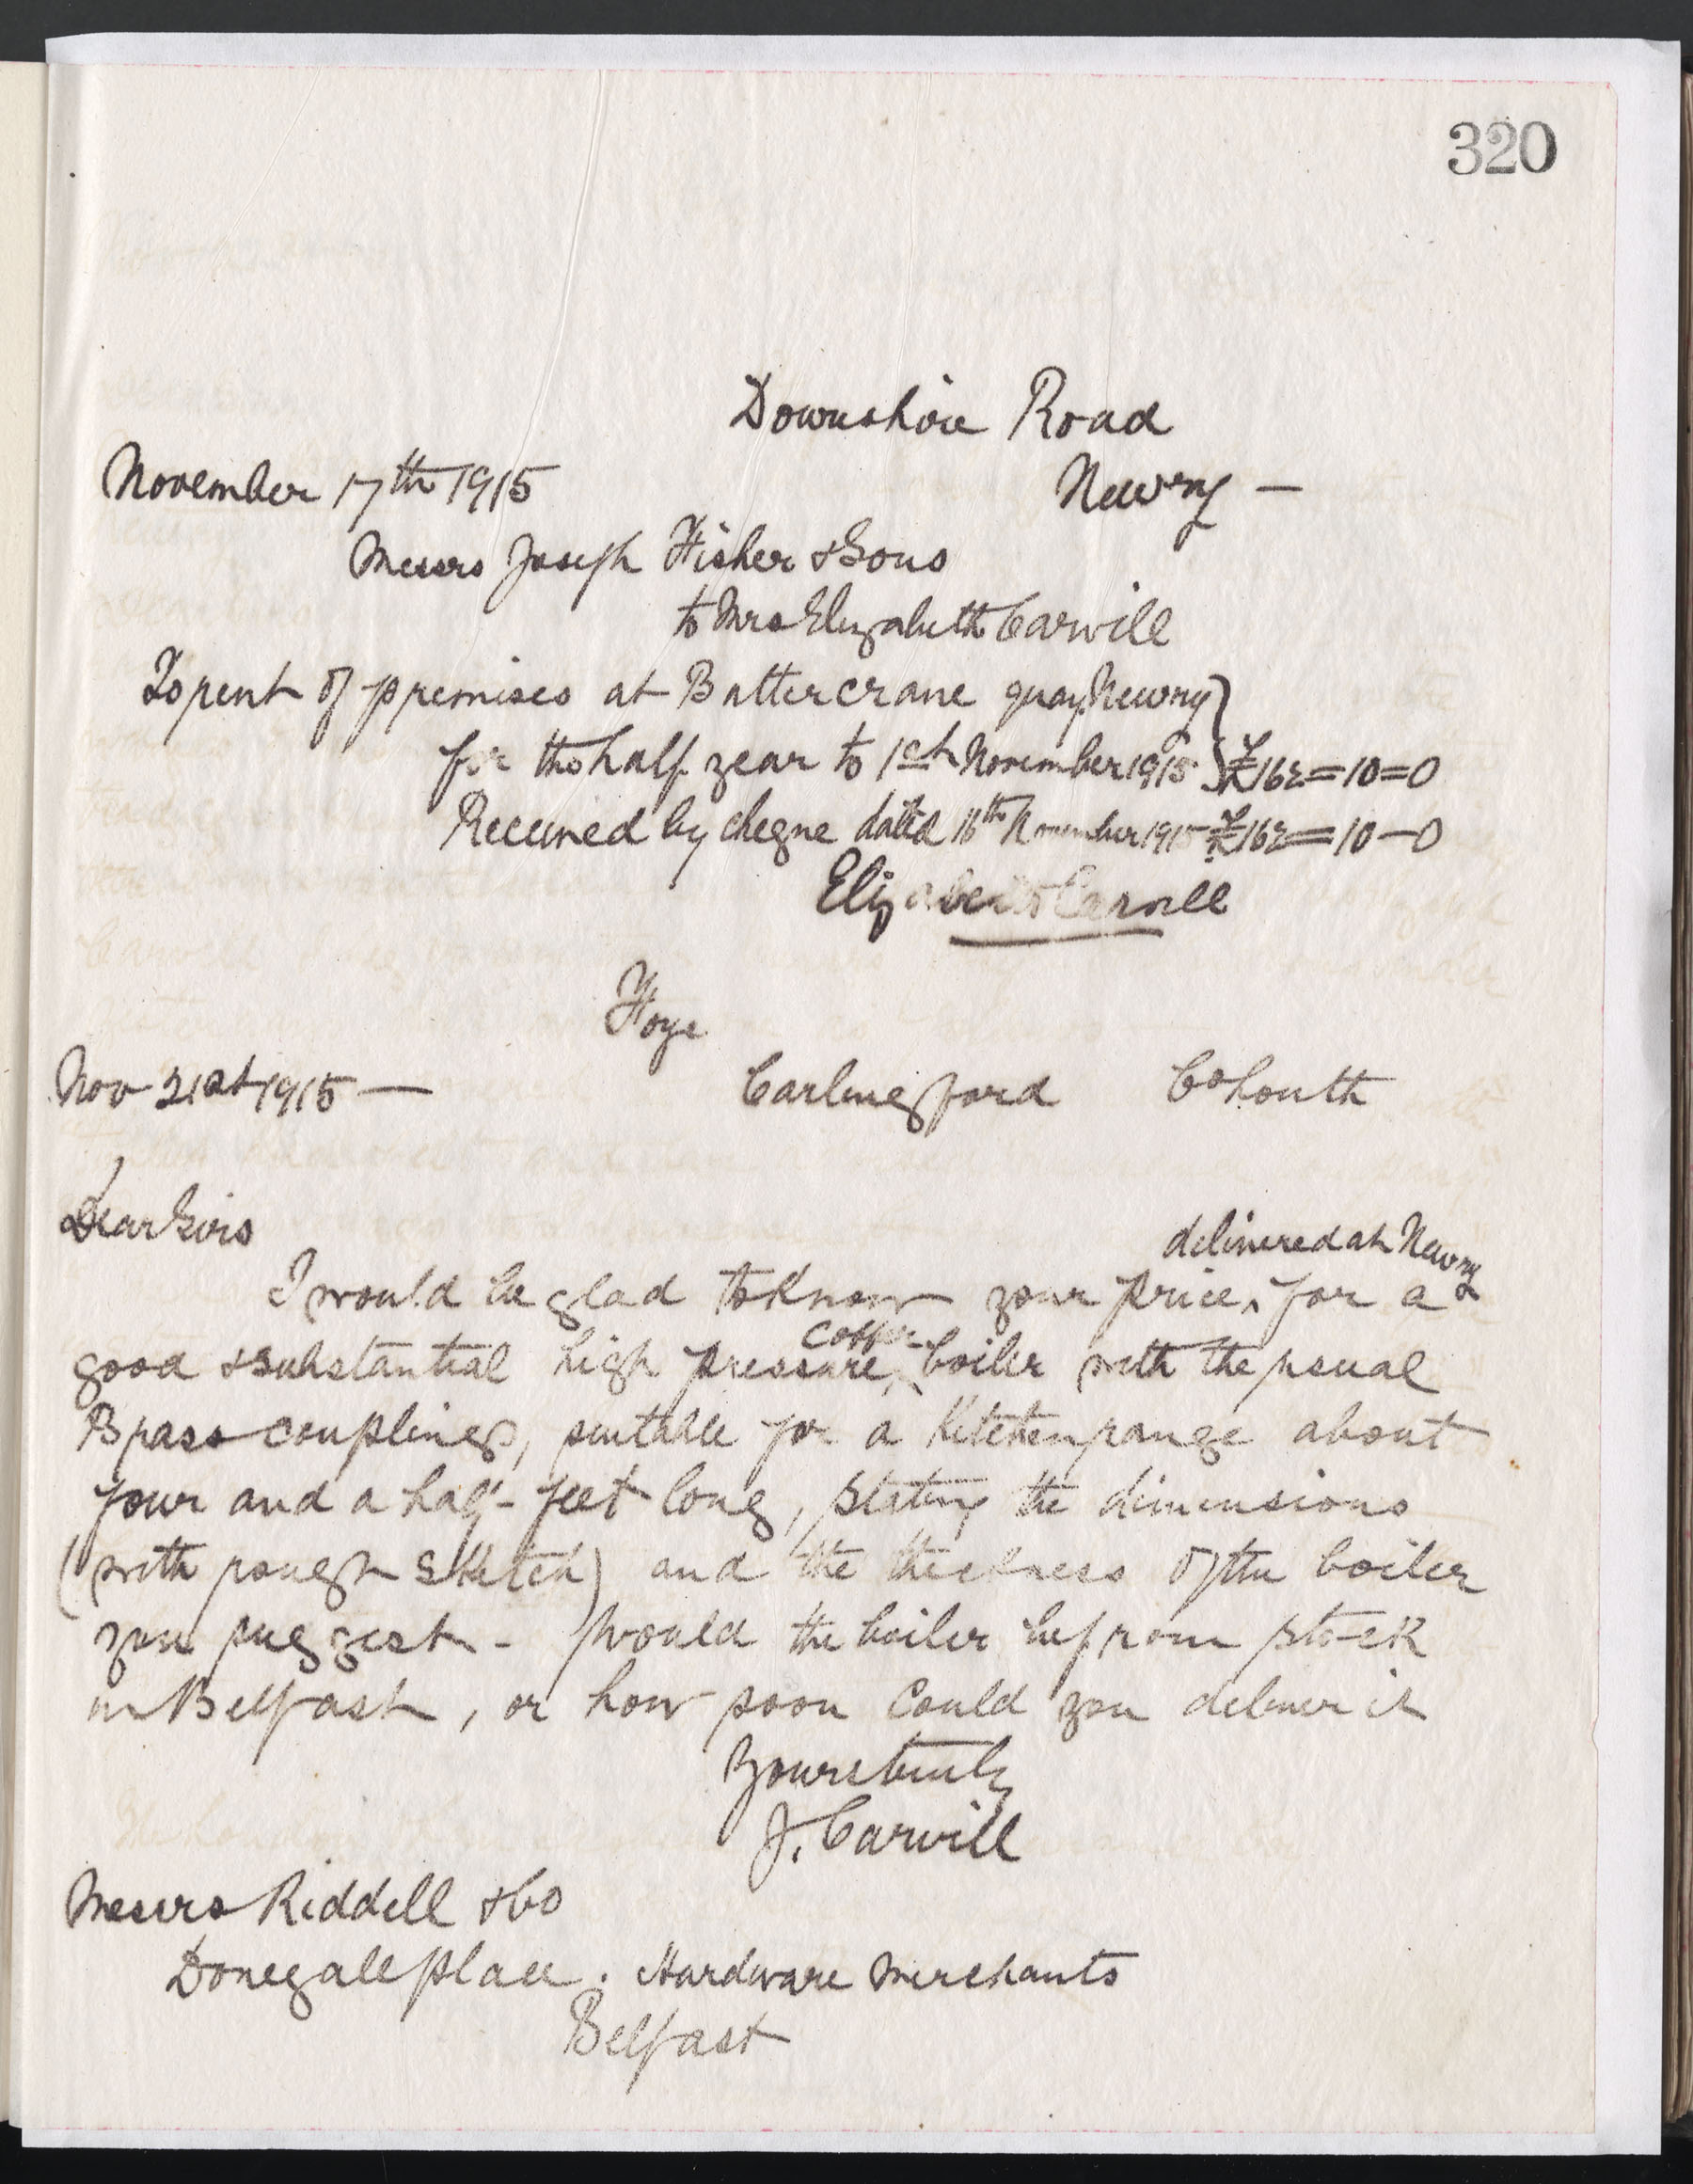 320
Downshire Road
November 17th 1915 Newry —
Messrs Joseph Fisher & Sons
to Mrs Elizabeth Carvill
To rent of premises at Buttercrane quay Newry
for the half year to 1st November 1915 £162=10=0
Received by cheque dated 16th November 1915 £162=10-0
Elizabeth Carvill
Foye
Nov 21st 1915 — Carlingford Co Louth
Dear Sirs
delivered at Newry
I would be glad to know your price, for a
copper
good & substantial high pressure, boiler with the usual
Brass couplings, suitable for a Kitchen range about
four and a half feet long, stating the dimensions
(with rough sketch) and the thickness of the boiler
you suggest - Would the boiler be from stock
in Belfast, or how soon could you deliver it
Yours truly
J. Carvill
Messrs Riddell & Co
Donegall place. Hardware Merchants
Belfast